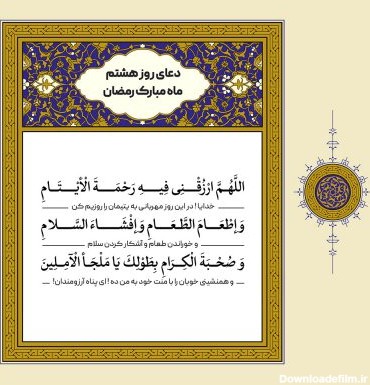 دعای روز هشتم
ماه مبارک رمضان
اللَّهُمَّ ارْزُقْنِی فِیهِ رَحْمَةَ الْأَیْتَامِ
خدایا! در این روز مهربانی به یتیمان را روزیم کن
وَ إِطْعَامَ الطَّعَامِ وَ إِفْشَاءَ السَّلامِ
و خوراندن طعام و آشکار کردن سلام
وَ صُحْبَةَ الْکِرَامِ بِطَوْلِکَ یَا مَلْجَأَ الْآمِلِینَ
و همنشینی خوبان را با منت خود به من ده! ای پناه آرزومندان!
Downloadefilm.ir